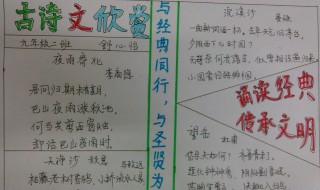 古诗文欣赏
九年级二班
夜雨寄北
李商隐
君问归期未有期,
巴山夜雨涨秋池,
何当共剪西窗烛,
却话巴山夜雨时
天净沙 秋思
马致远
枯藤老树昏鸦,小桥流水人家
与经典同行,与圣贤为
浣溪沙
晏殊
一曲新词酒一杯,去年天气旧亭台,
夕阳西下几时回?
无可奈何花落去,似曾相识燕归来,
小园香径独徘徊
诵读经典
传承文明
望岳
杜甫
岱宗夫如何?齐鲁青未了。
造化钟神秀,阴阳割昏晓。